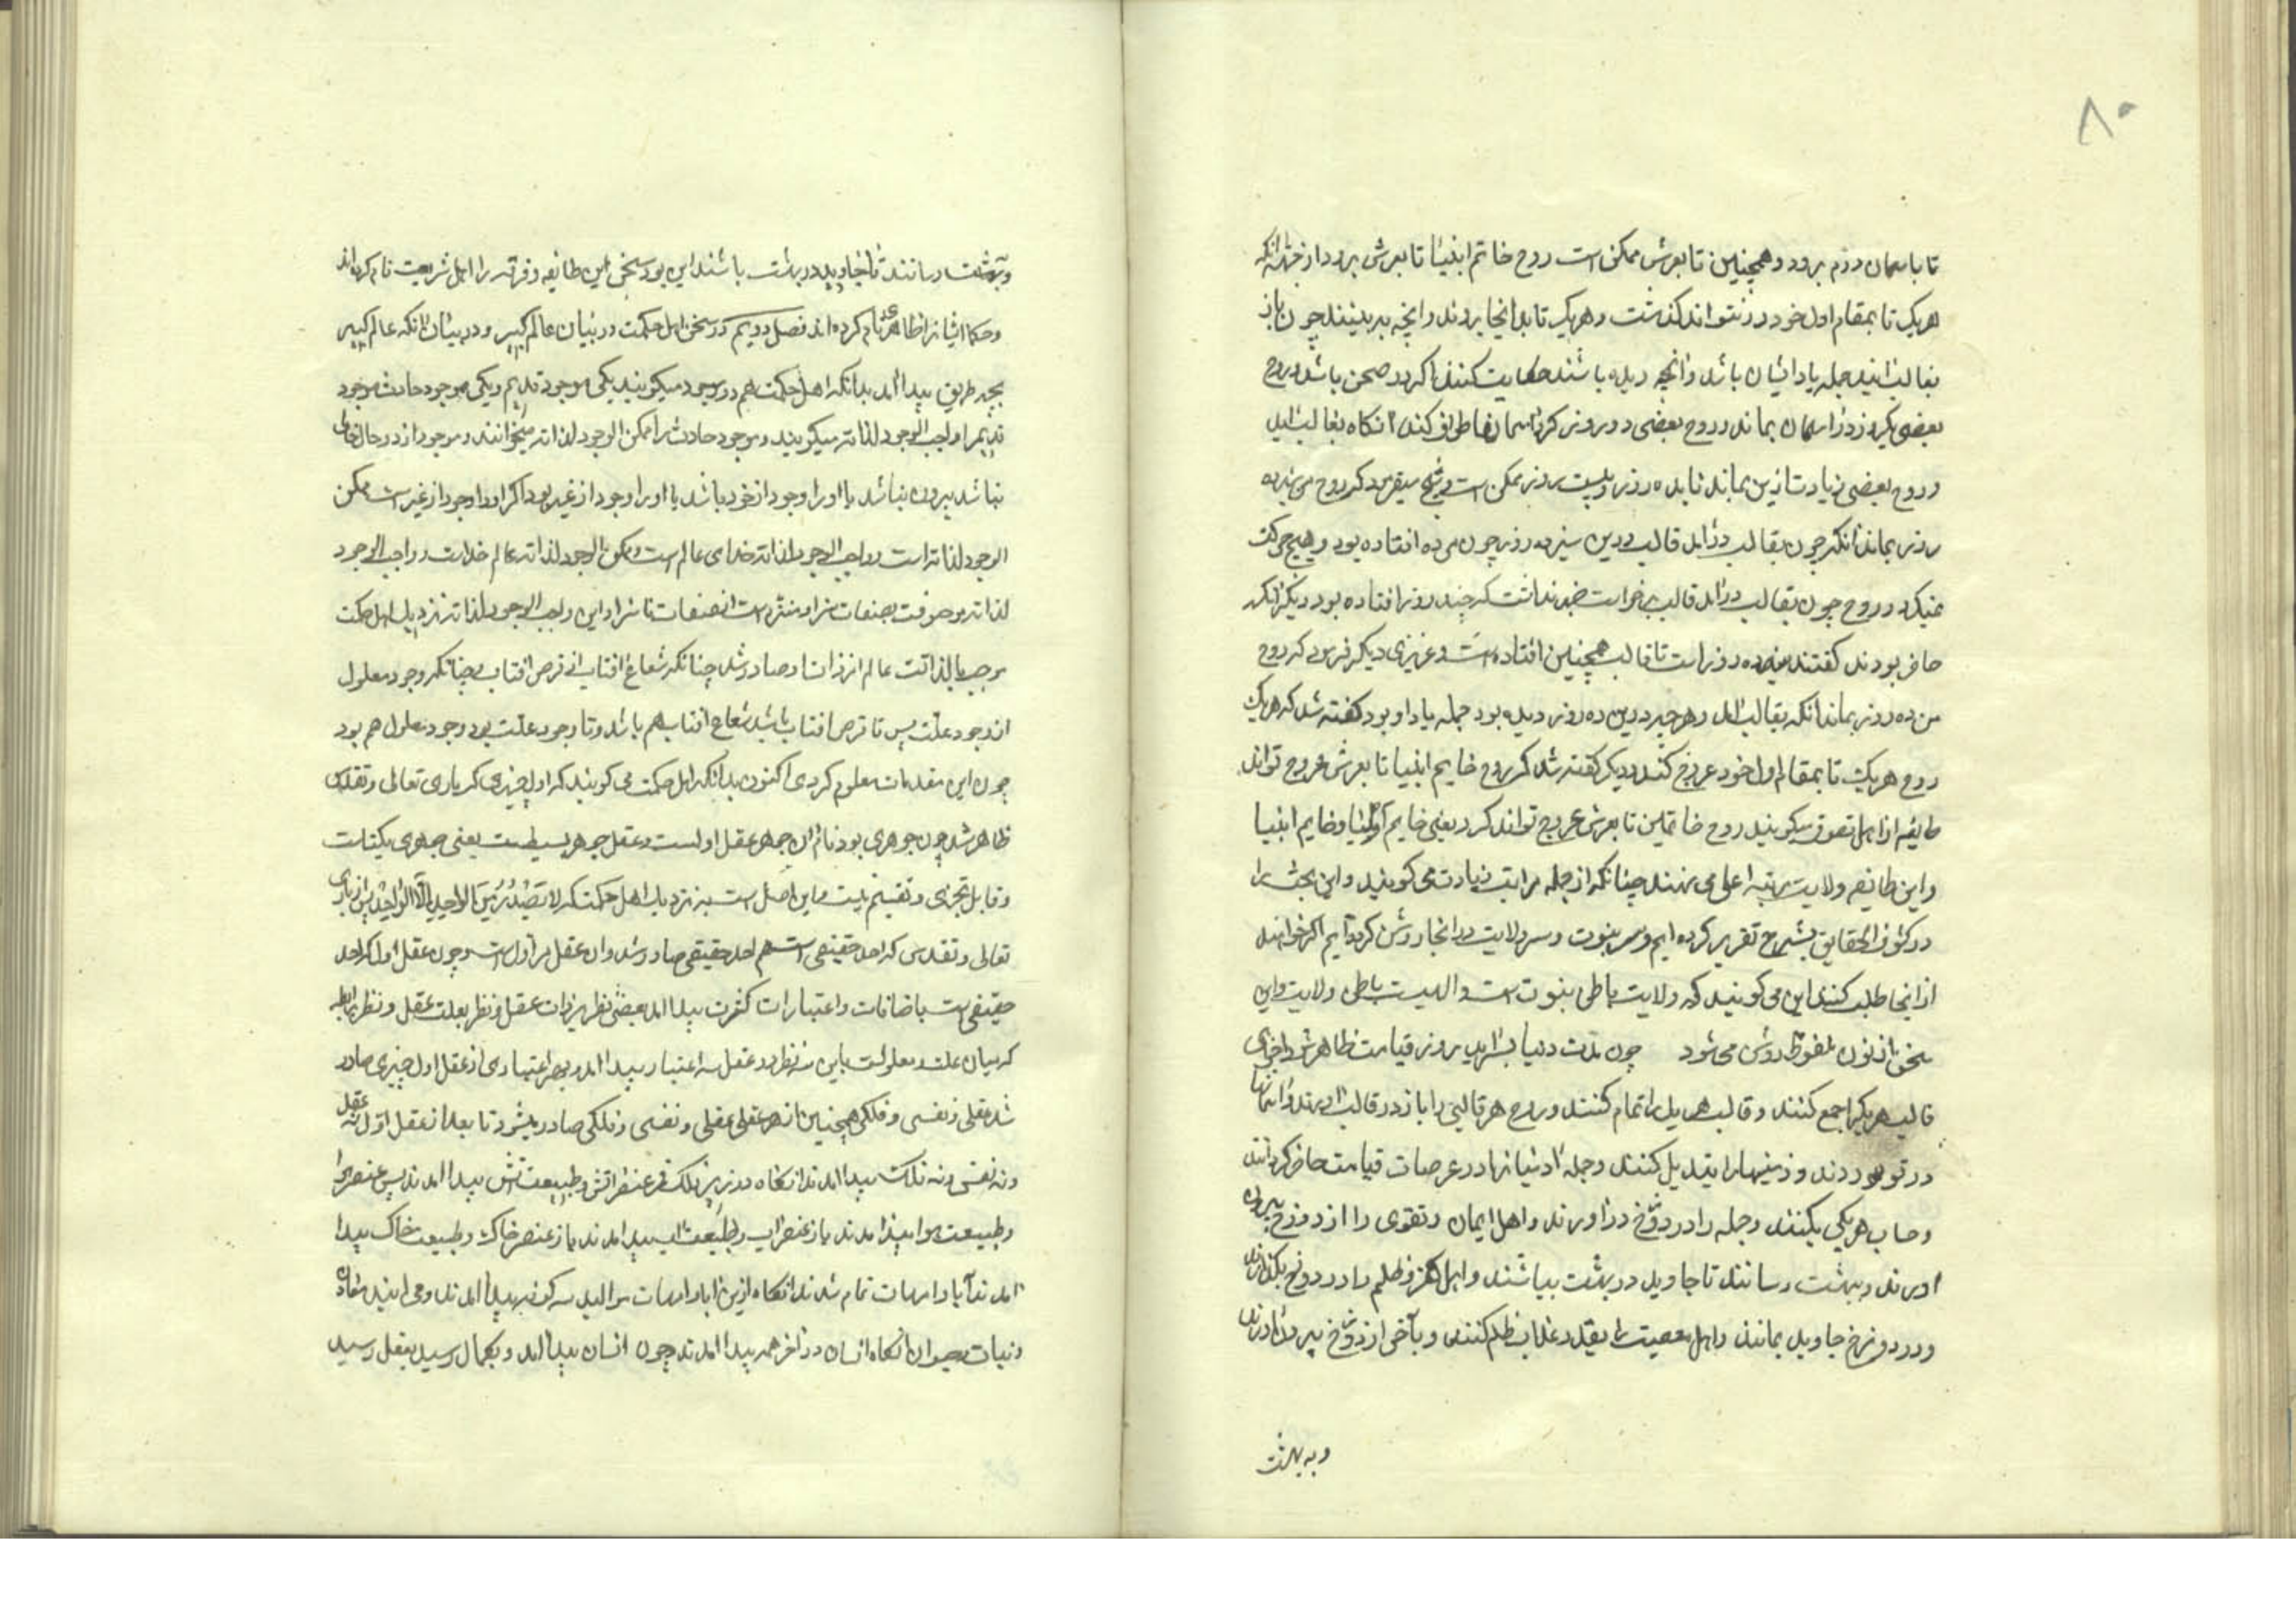 ۸۰
تا باسمان دوم برود و همچنین تا بعرش ممکن است روح خاتم انبیا تا بعرش برود از جهة انکه
هر یک تا بمقام اول خود در نتواند کذشت و هر یک تا بدانجا بروند و انچه ببینند چون باز
بقالب ایند جمله یاد ایشان باشد و انچه دیده باشند حکایت کنند اکر در صحن باشد و روح
بعضی یکروز در اسمان بماند و روح بعضی دو روز و کرد اسمانها طواف کند انکاه بقالب اید
و روح بعضی زیادت ازین بماند تا بده روز و بیست روز ممکن است و شیخ میفرمود که روح من سیزده
روز بماند انکه چون بقالب درامد قالب درین سیزده روز چون مرده افتاده بود و هیچ حرکت
نمیکرد و روح چون بقالب درامد قالب برخواست خبر نداشت که چند روز افتاده بود دیکرانکه
حاضر بودند کفتند سیزده روز است تا قالب همچنین افتاده است و عزیزی دیکر فرمود که روح
من ده روز بماند انکه بقالب امد و هر چه درین ده روز دیده بود جمله یاد او بود کفته شد که هر یک
روح هر یک تا بمقام اول خود عروج کند و دیکر کفته شد که روح خاتم انبیا تا بعرش عروج تواند
طایفه از اهل تصوف میکویند روح خاتمین تا بعرش عروج تواند کرد یعنی خاتم اولیا و خاتم انبیا
و این طایفه ولایت مرتبه اعلی می نهند چنانکه از جمله مراتب زیادت می کویند و این بحث را
در کشف الحقایق بشرح تقریر کرده ایم و سر نبوت و سر ولایت در انجا روشن کرده ایم اکر خواهند
از انجا طلب کنند این می کویند که ولایت باطن نبوت است و الهیت باطن ولایت و این
سخن از نون ملفوظ روشن می شود چون مدت دنیا بسراید روز قیامت ظاهر شود اجزای
قالب هر یک را جمع کنند و قالب هر یک را تمام کنند و روح هر قالبی را باز در قالب اورند و اسمانها
در نوردند و زمینها را تبدیل کنند و جمله ادمیان را در عرصات قیامت حاضر کردانند
و حساب هر یکی بکنند و جمله را در دوزخ دراورند و اهل ایمان و تقوی را از دوزخ بیرون
اورند و ببهشت رسانند تا جاوید در بهشت بباشند و اهل کفر و ظلم را در دوزخ بکذارند
و در دوزخ جاوید بمانند و اهل معصیت را بقدر عذاب ظلم کنند و بآخر از دوزخ بیرون اورند
و به بهشت
و به بهشت رسانند تا جاوید در بهشت باشند این بود سخن این طایفه و فرقه را اهل شریعت نام کرده اند
و حکما ایشانرا ظاهری نام کرده اند فصل دویم در سخن اهل حکمت در بیان عالم کبیر و در بیان انکه عالم کبیر
بچه طریق پیدا امد بدانکه اهل حکمت هم دو موجود میکویند یکی موجود قدیم و یکی موجود حادث موجود
قدیم را واجب الوجود لذاته میکویند و موجود حادث را ممکن الوجود لذاته میخوانند و موجود از دو حال خالی
نباشد بیرون نباشد یا او را وجود از خود باشد یا او را وجود از غیر بود اکر او را وجود از غیر است ممکن
الوجود لذاته است و واجب الوجود لذاته خدای عالم است و ممکن الوجود لذاته عالم خداست و واجب الوجود
لذاته موصوفست بصفات سزا و منزه است از صفات ناسزا و این واجب الوجود لذاته نزدیک اهل حکمت
موجب بالذاتست عالم از ذات او صادر شد چنانکه شعاع افتاب از قرص افتاب و چنانکه وجود معلول
از وجود علت پس تا قرص افتاب باشد شعاع افتاب هم باشد و تا وجود علت بود وجود معلول هم بود
چون این مقدمات معلوم کردی اکنون بدانکه اهل حکمت می کویند که اول چیزی که باری تعالی و تقدس
ظاهر شد چون جوهری بود نام ان جوهر عقل اولست و عقل جوهر بسیطست یعنی جوهری یکتاست
و قابل تجزی و تقسیم نیست و این اصل است بنزدیک اهل حکمت که لا یَصْدُرُ مِنَ الواحِدِ اِلّا الواحِدُ پس از باری
تعالی و تقدس که احد حقیقی است هم احد حقیقی صادر شد و ان عقل اول است و چون عقل اول که احد
حقیقی است باضافات و اعتبارات کثرت پیدا امد یعنی نظر بذات عقل و نظر بعلت عقل و نظر برابطه
که میان علت و معلولست باین سه نظر در عقل سه اعتبار پیدا امد و بهر اعتباری از عقل اول چیزی صادر
شد عقلی و نفسی و فلکی همچنین از هر عقلی عقلی و نفسی و فلکی صادر میشود تا بعد از عقل اول نه عقل
و نه نفس و نه فلک پیدا امدند انکاه در زیر فلک قمر عنصر اتش و طبیعت اتش پیدا امدند پس عنصر هوا
و طبیعت هوا پیدا امدند باز عنصر اب و طبیعت اب پیدا امدند باز عنصر خاک و طبیعت خاک پیدا
امدند آبا و امهات تمام شدند انکاه ازین ابا و امهات موالید سه کونه پیدا امدند و می ایند معادن
و نبات و حیوان انکاه انسان در اخر همه پیدا امدند چون انسان پیدا امد و بکمال رسید بعقل رسید